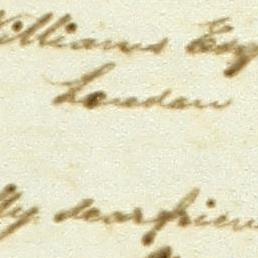 Williams Esq
London
My dear frien